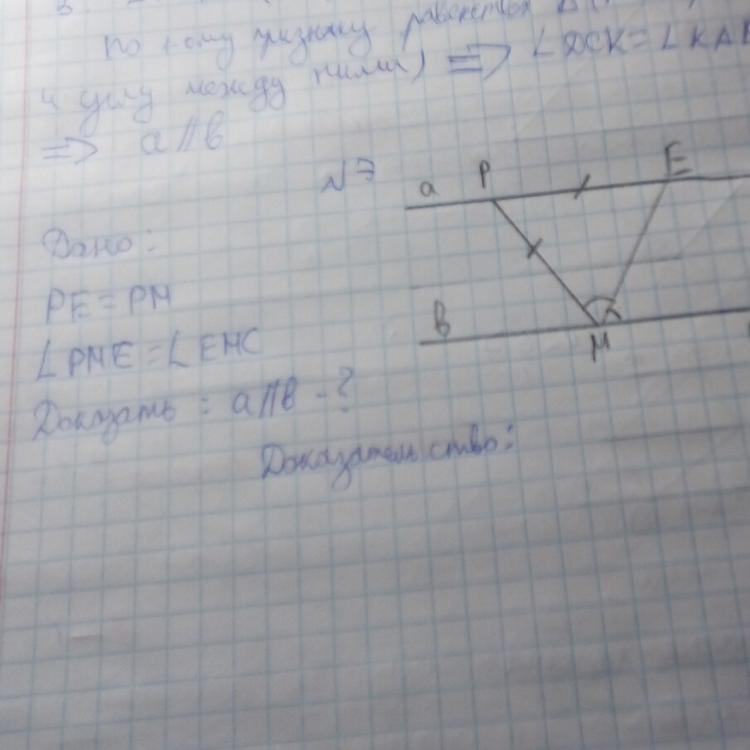 по 1-ому признаку равенства
и углу между ними) => ∠DCK = ∠KA
=> a∥b
№7
a P E
Дано:
PE = PM
b
∠PME = ∠EMC
M
Доказать: a∥b - ?
Доказательство: